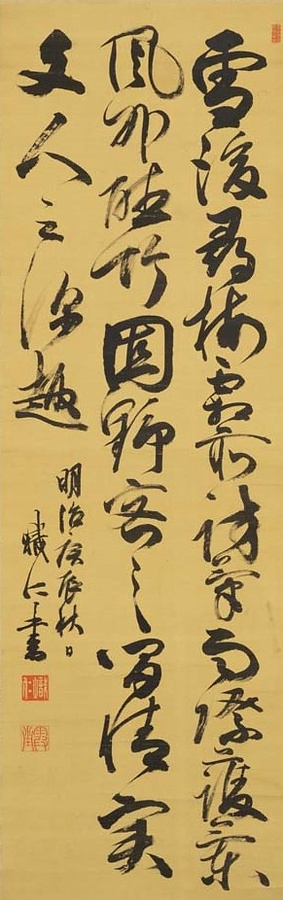 雪後尋梅霜前訪菊雨際護蘭
風外聴竹固野客之閑情実
文人之深趣
明治庚辰秋日
熾仁書